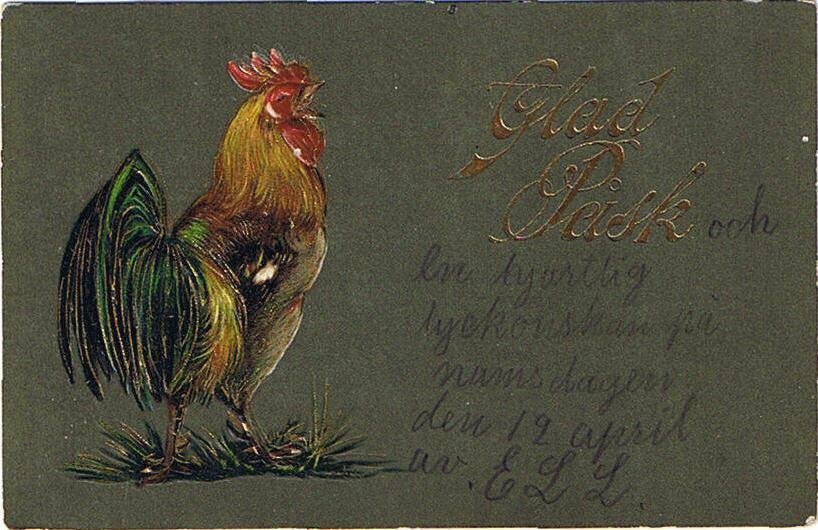 Glad
Påsk och
En hjärtlig
lyckönskan på
namsdagen
den 12 april
av. E L L.